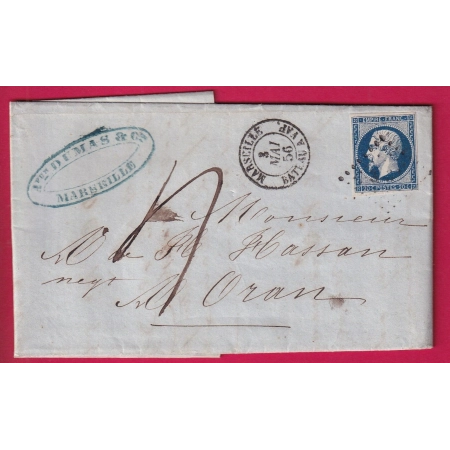 Ate DUMAS & Cie
MARSEILLE
MARSEILLE
3
MAI
56
BAT. AU VAP.
EMPIRE FRANC
20 C. POSTES 20 C.
Monsieur
Hassan
negt
Oran